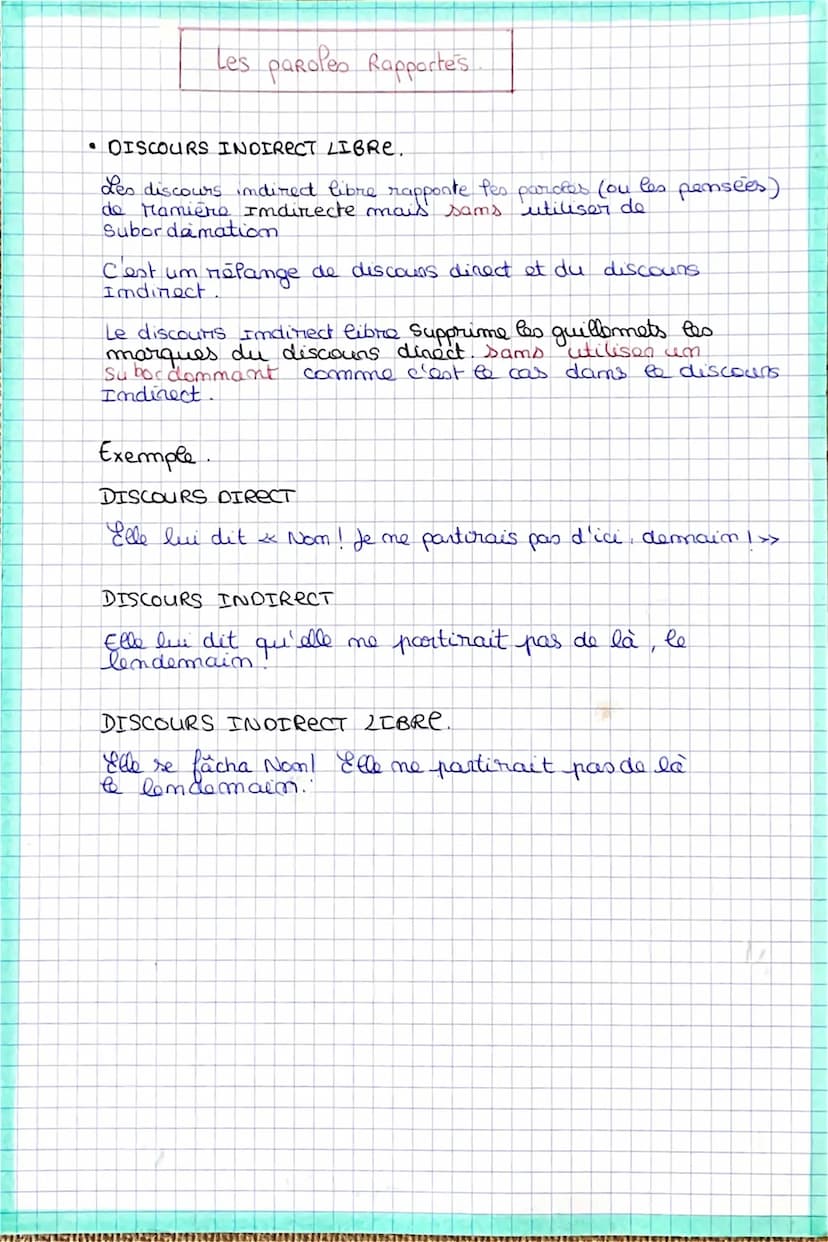 Les paroles Rapportés.
• DISCOURS INDIRECT LIBRE.
Les discours indirect libre rapporte les paroles (ou les pensées)
de manière Indirecte mais sans utiliser de
Subordamation
C'est un mélange de discours direct et du discours
Indirect.
Le discours Indirect libre Supprime les guillemets les
marques du discours direct. sans utiliser un
Subordonnant comme c'est le cas dans le discours
Indirect.
Exemple.
DISCOURS DIRECT
Elle lui dit « Non ! Je ne partirais pas d'ici, demain ! »
DISCOURS INDIRECT
Elle lui dit qu'elle ne partirait pas de là, le
lendemain !
DISCOURS INDIRECT LIBRE.
Elle se fâcha Non! Elle ne partirait pas de là
le lendemain.